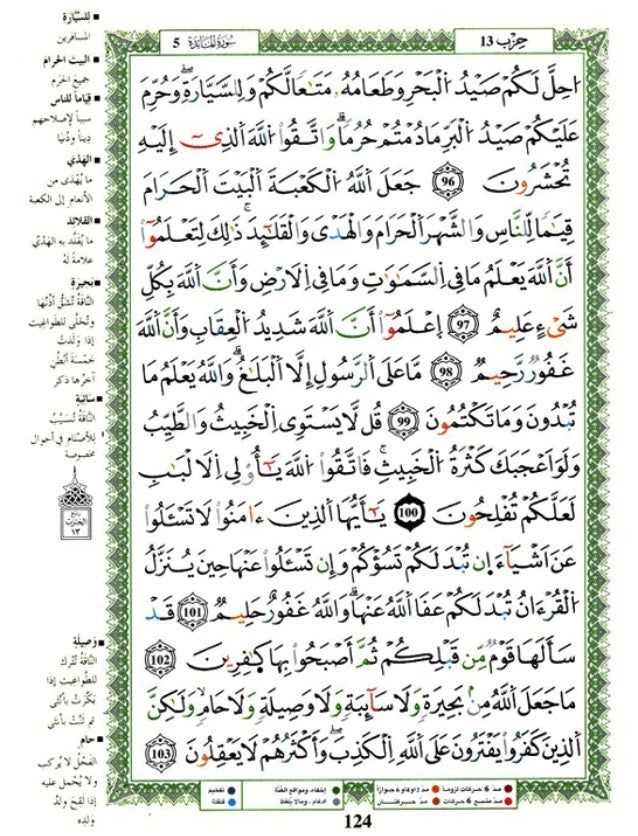 حِزْب 13
سُورَةُ المَائِدَة 5
اُحِلَّ لَكُمْ صَيْدُ اُلْبَحْرِ وَطَعَامُهُۥ مَتَٰعاً لَّكُمْ وَلِلسَّيَّارَةِۖ وَحُرِّمَ
عَلَيْكُمْ صَيْدُ اُلْبَرِّ مَا دُمْتُمْ حُرُماًۗ وَاتَّقُواْ اُللَّهَ اَلذِےٓ إِلَيْهِ
تُحْشَرُونَ 96 جَعَلَ اَللَّهُ اُلْكَعْبَةَ اَلْبَيْتَ اَلْحَرَامَ
قِيَٰماً لِّلنَّاسِ وَالشَّهْرَ اَلْحَرَامَ وَالْهَدْىَ وَالْقَلَٰٓئِدَۚ ذَٰلِكَ لِتَعْلَمُوٓاْ
أَنَّ اَللَّهَ يَعْلَمُ مَا فِے اِلسَّمَٰوَٰتِ وَمَا فِے اِلَارْضِ وَأَنَّ اَللَّهَ بِكُلِّ
شَےْءٍ عَلِيمٌ 97 اِعْلَمُوٓاْ أَنَّ اَللَّهَ شَدِيدُ اُلْعِقَابِ وَأَنَّ اَللَّهَ
غَفُورٌ رَّحِيمٌ 98 مَّا عَلَى اَلرَّسُولِ إِلَّا اَلْبَلَٰغُۗ وَاللَّهُ يَعْلَمُ مَا
تُبْدُونَ وَمَا تَكْتُمُونَ 99 قُل لَّا يَسْتَوِے اِلْخَبِيثُ وَالطَّيِّبُ
وَلَوَ اَعْجَبَكَ كَثْرَةُ اُلْخَبِيثِۚ فَاتَّقُواْ اُللَّهَ يَٰٓأُوْلِے اِلَالْبَٰبِ
لَعَلَّكُمْ تُفْلِحُونَ 100 يَٰٓأَيُّهَا اَلذِينَ ءَامَنُواْ لَا تَسْـَٔلُواْ
عَنَ اَشْيَآءَ ان تُبْدَ لَكُمْ تَسُؤْكُمْ وَإِن تَسْـَٔلُواْ عَنْهَا حِينَ يُنَزَّلُ
اُلْقُرْءَانُ تُبْدَ لَكُمْ عَفَا اَللَّهُ عَنْهَاۗ وَاللَّهُ غَفُورٌ حَلِيمٌ 101 قَدْ
سَأَلَهَا قَوْمٌ مِّن قَبْلِكُمْ ثُمَّ أَصْبَحُواْ بِهَا كَٰفِرِينَ 102
مَا جَعَلَ اَللَّهُ مِنۢ بَحِيرَةٍ وَلَا سَآئِبَةٍ وَلَا وَصِيلَةٍ وَلَا حَامٍ وَلَٰكِنَّ
اَلذِينَ كَفَرُواْ يَفْتَرُونَ عَلَى اَللَّهِ اِلْكَذِبَۖ وَأَكْثَرُهُمْ لَا يَعْقِلُونَ 103
■ لِلسَّيَّارَةِ
المسافرين
■ البيت الحرام
جميعَ الحَرَم
■ قِيَاماً للناس
سبباً لإصلاحهم
ديناً ودُنيَا
■ الهَدْيَ
ما يُهْدَى من
الأنعام إلى الكعبة
■ القلائد
ما يُقَلَّد به الهَدْيُ
علامةً لَهُ
■ بَحِيرَة
النَّاقَةُ تُشَقُّ أذُنُهَا
وتُخَلَّى للطواغيت
إذا وَلَدَتْ
خَمْسَةَ أبْطُن
آخرُها ذكر
■ سَائِبَة
النَّاقَةُ تُسَيَّبُ
للأصنام في أحوال
مخصوصة
■ وَصِيلَة
النَّاقَةُ تُتْرَك
للطَّواغِيت إذا
بَكَّرَتْ بأنثى
ثم ثَنَّتْ بأنثى
■ حام
الفَحْلُ لا يُركب
ولا يُحْمل عليه
إذا لَقِحَ ولَدُ
وَلَدِه
مدّ 6 حركات لزوماً
مدّ 2 أو 4 أو 6 جوازاً
إخفاء، ومواقع الغُنَّة
تفخيم
مدّ مشبع 6 حركات
مدّ حركتان
ادغام، وما لا يُلفَظ
قلقلة
124